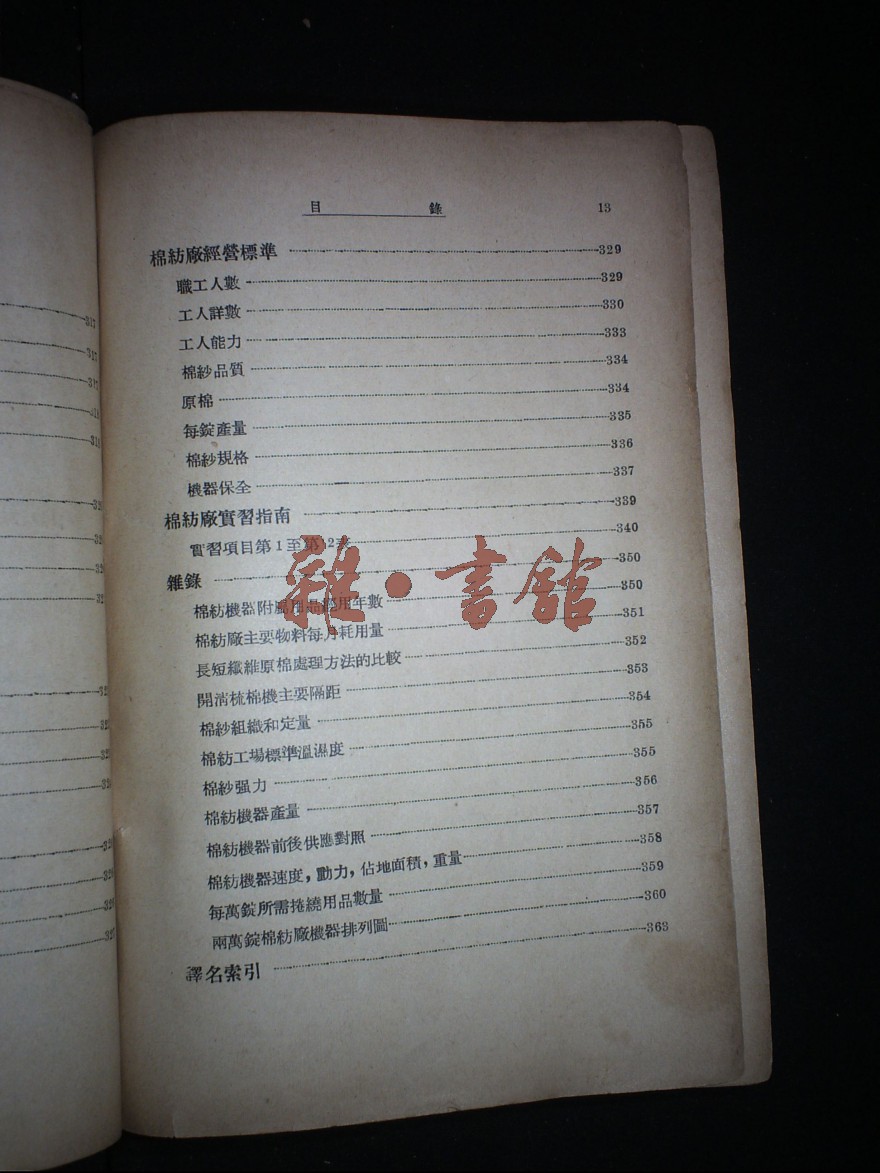 目錄 13
棉紡廠經營標準 329
職工人數 329
工人詳數 330
工人能力 333
棉紗品質 334
原棉 334
每錠產量 335
棉紗規格 336
機器保全 337
棉紡廠實習指南 339
實習項目第1至第12 340
雜錄 350
棉紡機器附屬用品經用年數 350
棉紡廠主要物料每月耗用量 351
長短纖維原棉處理方法的比較 352
開清梳棉機主要隔距 353
棉紗組織和定量 354
棉紡工場標準溫濕度 355
棉紗强力 355
棉紡機器產量 356
棉紡機器前後供應對照 357
棉紡機器速度，動力，佔地面積，重量 358
每萬錠所需捲繞用品數量 359
兩萬錠棉紡廠機器排列圖 360
譯名索引 363
雜·書舘
317
317
317
318